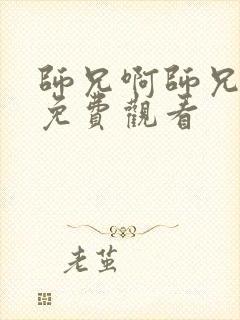 師兄啊師兄
免費觀看
老茧